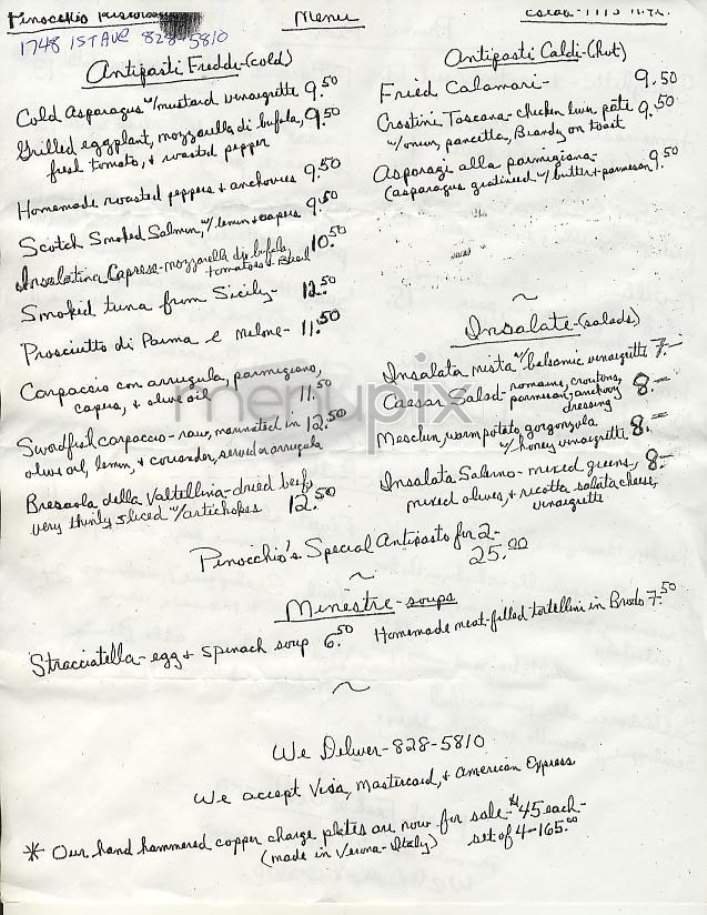 Pinocchio
Menu
1748 1ST AVE 828-5810
Antipasti Freddi-(cold)
Cold Asparagus w/mustard vinaigrette 9.50
Grilled eggplant, mozzarella di bufula, 9.50
fresh tomato, + roasted pepper
Homemade roasted peppers + anchovies 9.50
Scotch Smoked Salmon, w/ lemon + capers 9.50
Insalatina Caprese-mozzarella di bufula, 10.50
tomatoes + Basil
Smoked tuna from Sicily- 12.50
Prosciutto di Parma e melone- 11.50
Carpaccio con arrugula, parmigiano,
capers, + olive oil 11.50
Swordfish carpaccio-raw, marinated in 12.50
olive oil, lemon, + coriander, served w/arrugula
Bresaola della Valtellina-dried beef,
very thinly sliced w/artichokes 12.50
Antipasti Caldi-(hot)
Fried Calamari- 9.50
Crostini Toscana-chicken liver pâté 9.50
w/onion, pancetta, Brandy on toast
Asparagi alla parmigiana-
(asparagus gratineed w/ butter + parmesan) 9.50
~
Insalate-(salads)
Insalata mista w/balsamic vinaigrette 7.-
Caesar Salad-romaine, croutons,
parmesan, anchovy 8.-
dressing
Mesclun, warm potato, gorgonzola
w/honey vinaigrette 8.-
Insalata Salerno-mixed greens, 8.-
mixed olives, + ricotta salata cheese,
vinaigrette
Pinocchio's Special Antipasto for 2-
25.00
~
Minestre-soups
Stracciatella-egg + spinach soup 6.50
Homemade meat-filled-tortellini in Brodo 7.50
~
We Deliver-828-5810
We accept Visa, Mastercard, + American Express
* Our hand hammered copper charge plates are now for sale-$45 each-
(made in Verona-Italy) set of 4-165.00
menupix